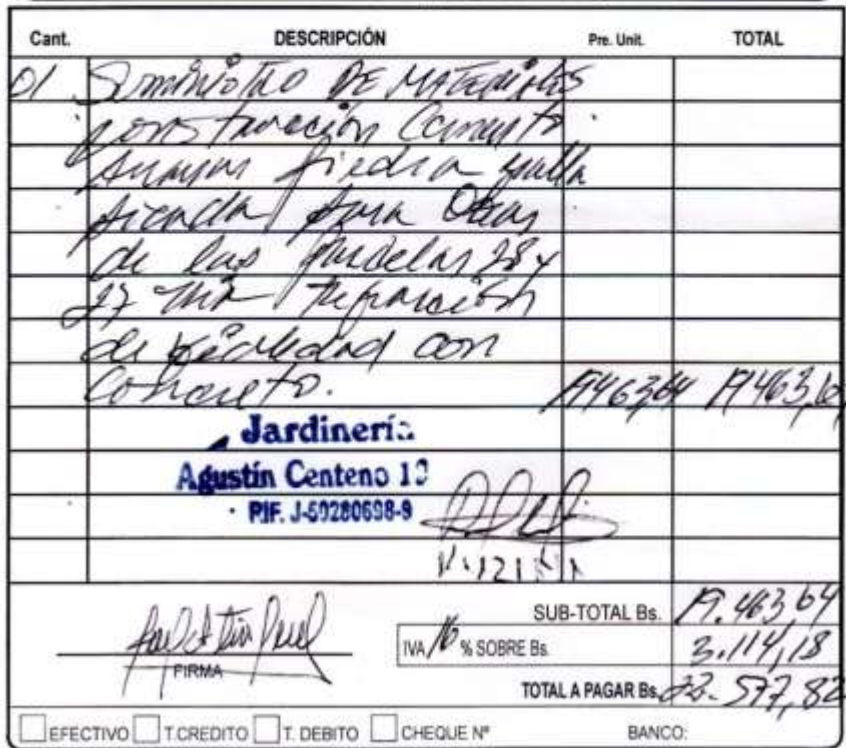 Cant. DESCRIPCIÓN Pre. Unit. TOTAL
01 Suministro DE MATERIALES
construcción Cemento
piedra malla
picada para Obras
de las parcelas 28 y
27 reparación
de vialidad con
Concreto. 19463,64 19463,64
Jardinería
Agustín Centeno 10
RIF. J-50280698-9
SUB-TOTAL Bs. 19.463,64
IVA 16 % SOBRE Bs. 3.114,18
FIRMA
TOTAL A PAGAR Bs. 22.577,82
EFECTIVO T.CREDITO T. DEBITO CHEQUE Nº BANCO: